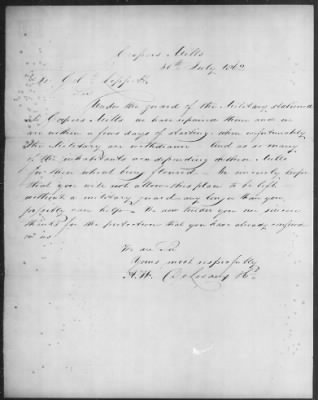 Coopers Mills
26th July 1862
Sir
Under the guard of the Military stationed
at Coopers Mills we have repaired them and we
are within a few days of starting, when unfortunately
the Military are withdrawn. And as so many
of the inhabitants are depending on these Mills
for their wheat being floured. We sincerely hope
that you will not allow this place to be left
without a military guard any longer than you
possibly can help. We now tender you our sincere
thanks for the protection that you have already confered
on us
We are Sir
Yours most respectfully